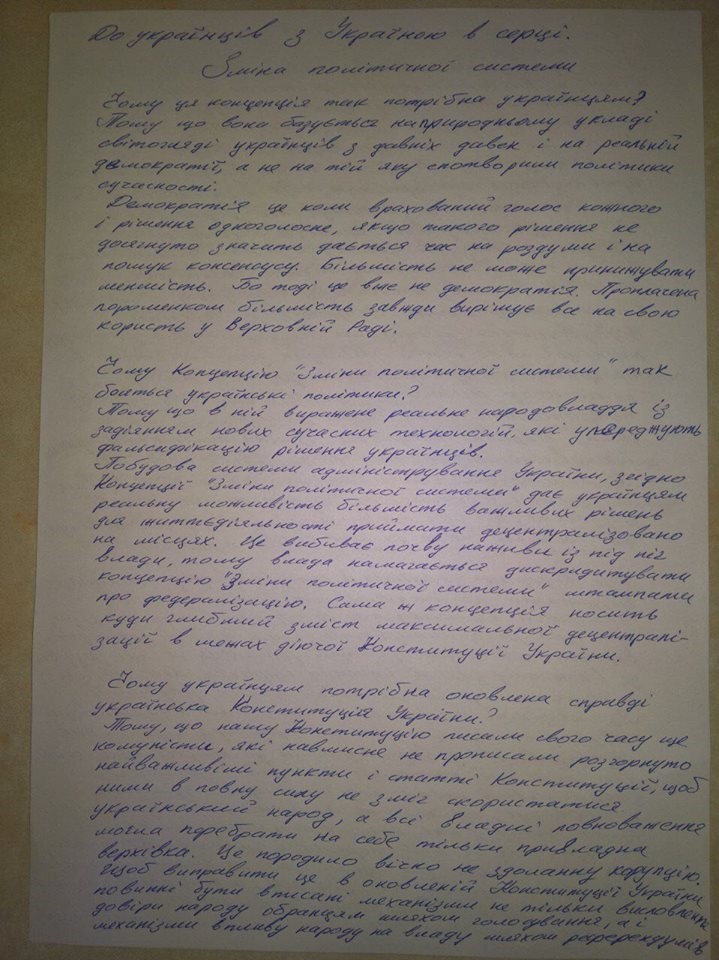 До українців з Україною в серці.
Зміна політичної системи
Чому ця концепція так потрібна українцям?
Тому що вона базується на природньому укладі
світогляді українців з давніх давен і на реальній
демократії, а не на тій яку спотворили політики
сучасності.
Демократія це коли врахований голос кожного
і рішення одноголосне, якщо такого рішення не
досягнуто значить дається час на роздуми і на
пошук консенсусу. Більшість не може принижувати
меншість. Бо тоді це вже не демократія. Проплачена
більшість завжди вирішує все на свою
користь у Верховній Раді.
Чому Концепцію "Зміни політичної системи" так
бояться українські політики?
Тому що в ній виражене реальне народовладдя із
задіянням нових сучасних технологій, які упереджують
фальсифікацію рішення українців.
Побудова системи адміністрування України, згідно
Концепції "Зміни політичної системи" дає українцям
реальну можливість більшість важливих рішень
для життєдіяльності приймати децентралізовано
на місцях. Це вибиває почву наживи із під ніг
влади, тому влада намагається дискредитувати
концепцію "Зміни політичної системи" штампами
про федералізацію. Сама ж концепція носить
куди глибший зміст максимальної децентралі-
зації в межах діючої Конституції України.
Чому українцям потрібна оновлена справді
українська Конституція України?
Тому, що нашу Конституцію писали свого часу ще
комуністи, які навмисне не прописали розгорнуто
найважливіші пункти і статті Конституції, щоб
ними в повну силу не зміг скористатися
український народ, а всі владні повноваження
могла перебрати на себе тільки привладна
верхівка. Це породило вічно не здоланну корупцію.
Щоб виправити це в оновленій Конституції України
повинні бути вписані механізми не тільки висловлення
довіри народу обранцям шляхом голосування, а і
механізми впливу народу на владу шляхом референдумів